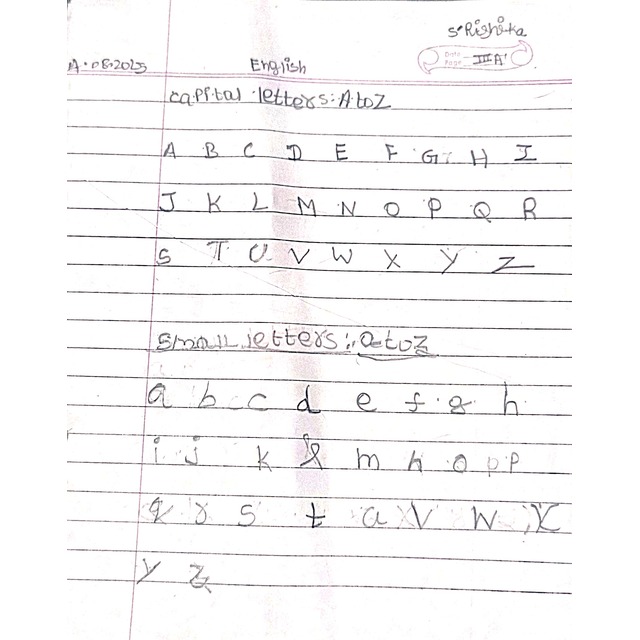 S. Rishika
Date
Page IIIA'
A. 08.2025 English
capital letters: A to Z
A B C D E F G H I
J K L M N O P Q R
S T U V W X Y Z
small letters: a to z
a b c d e f g h
i j k l m n o p p
q r s t a v w x
y z